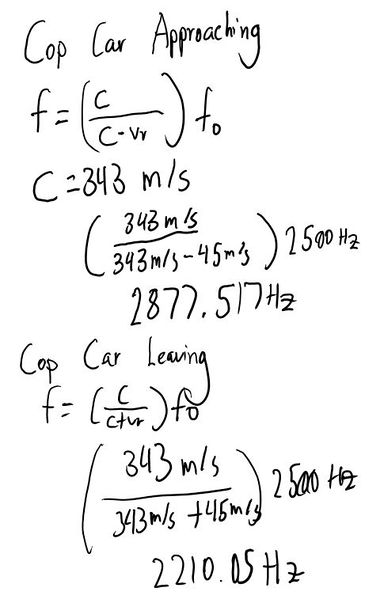 Cop Car Approaching
f = (c / c - vr) f₀
C = 343 m/s
(343 m/s / 343 m/s - 45 m/s) 2500 Hz
2877.517 Hz
Cop Car Leaving
f = (c / c + vr) f₀
(343 m/s / 343 m/s + 45 m/s) 2500 Hz
2210.05 Hz